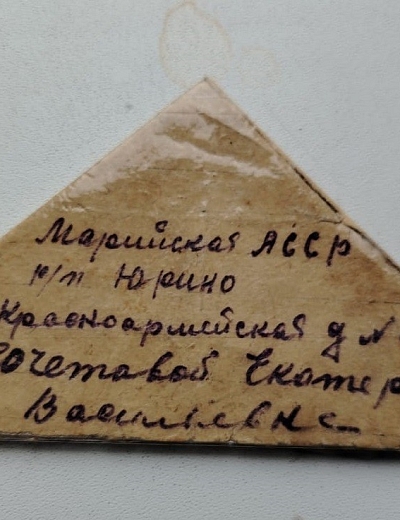 Марийская АССР
р/п Юрино
Красноармейская д №
Кочетовой Екатер
Васильевне